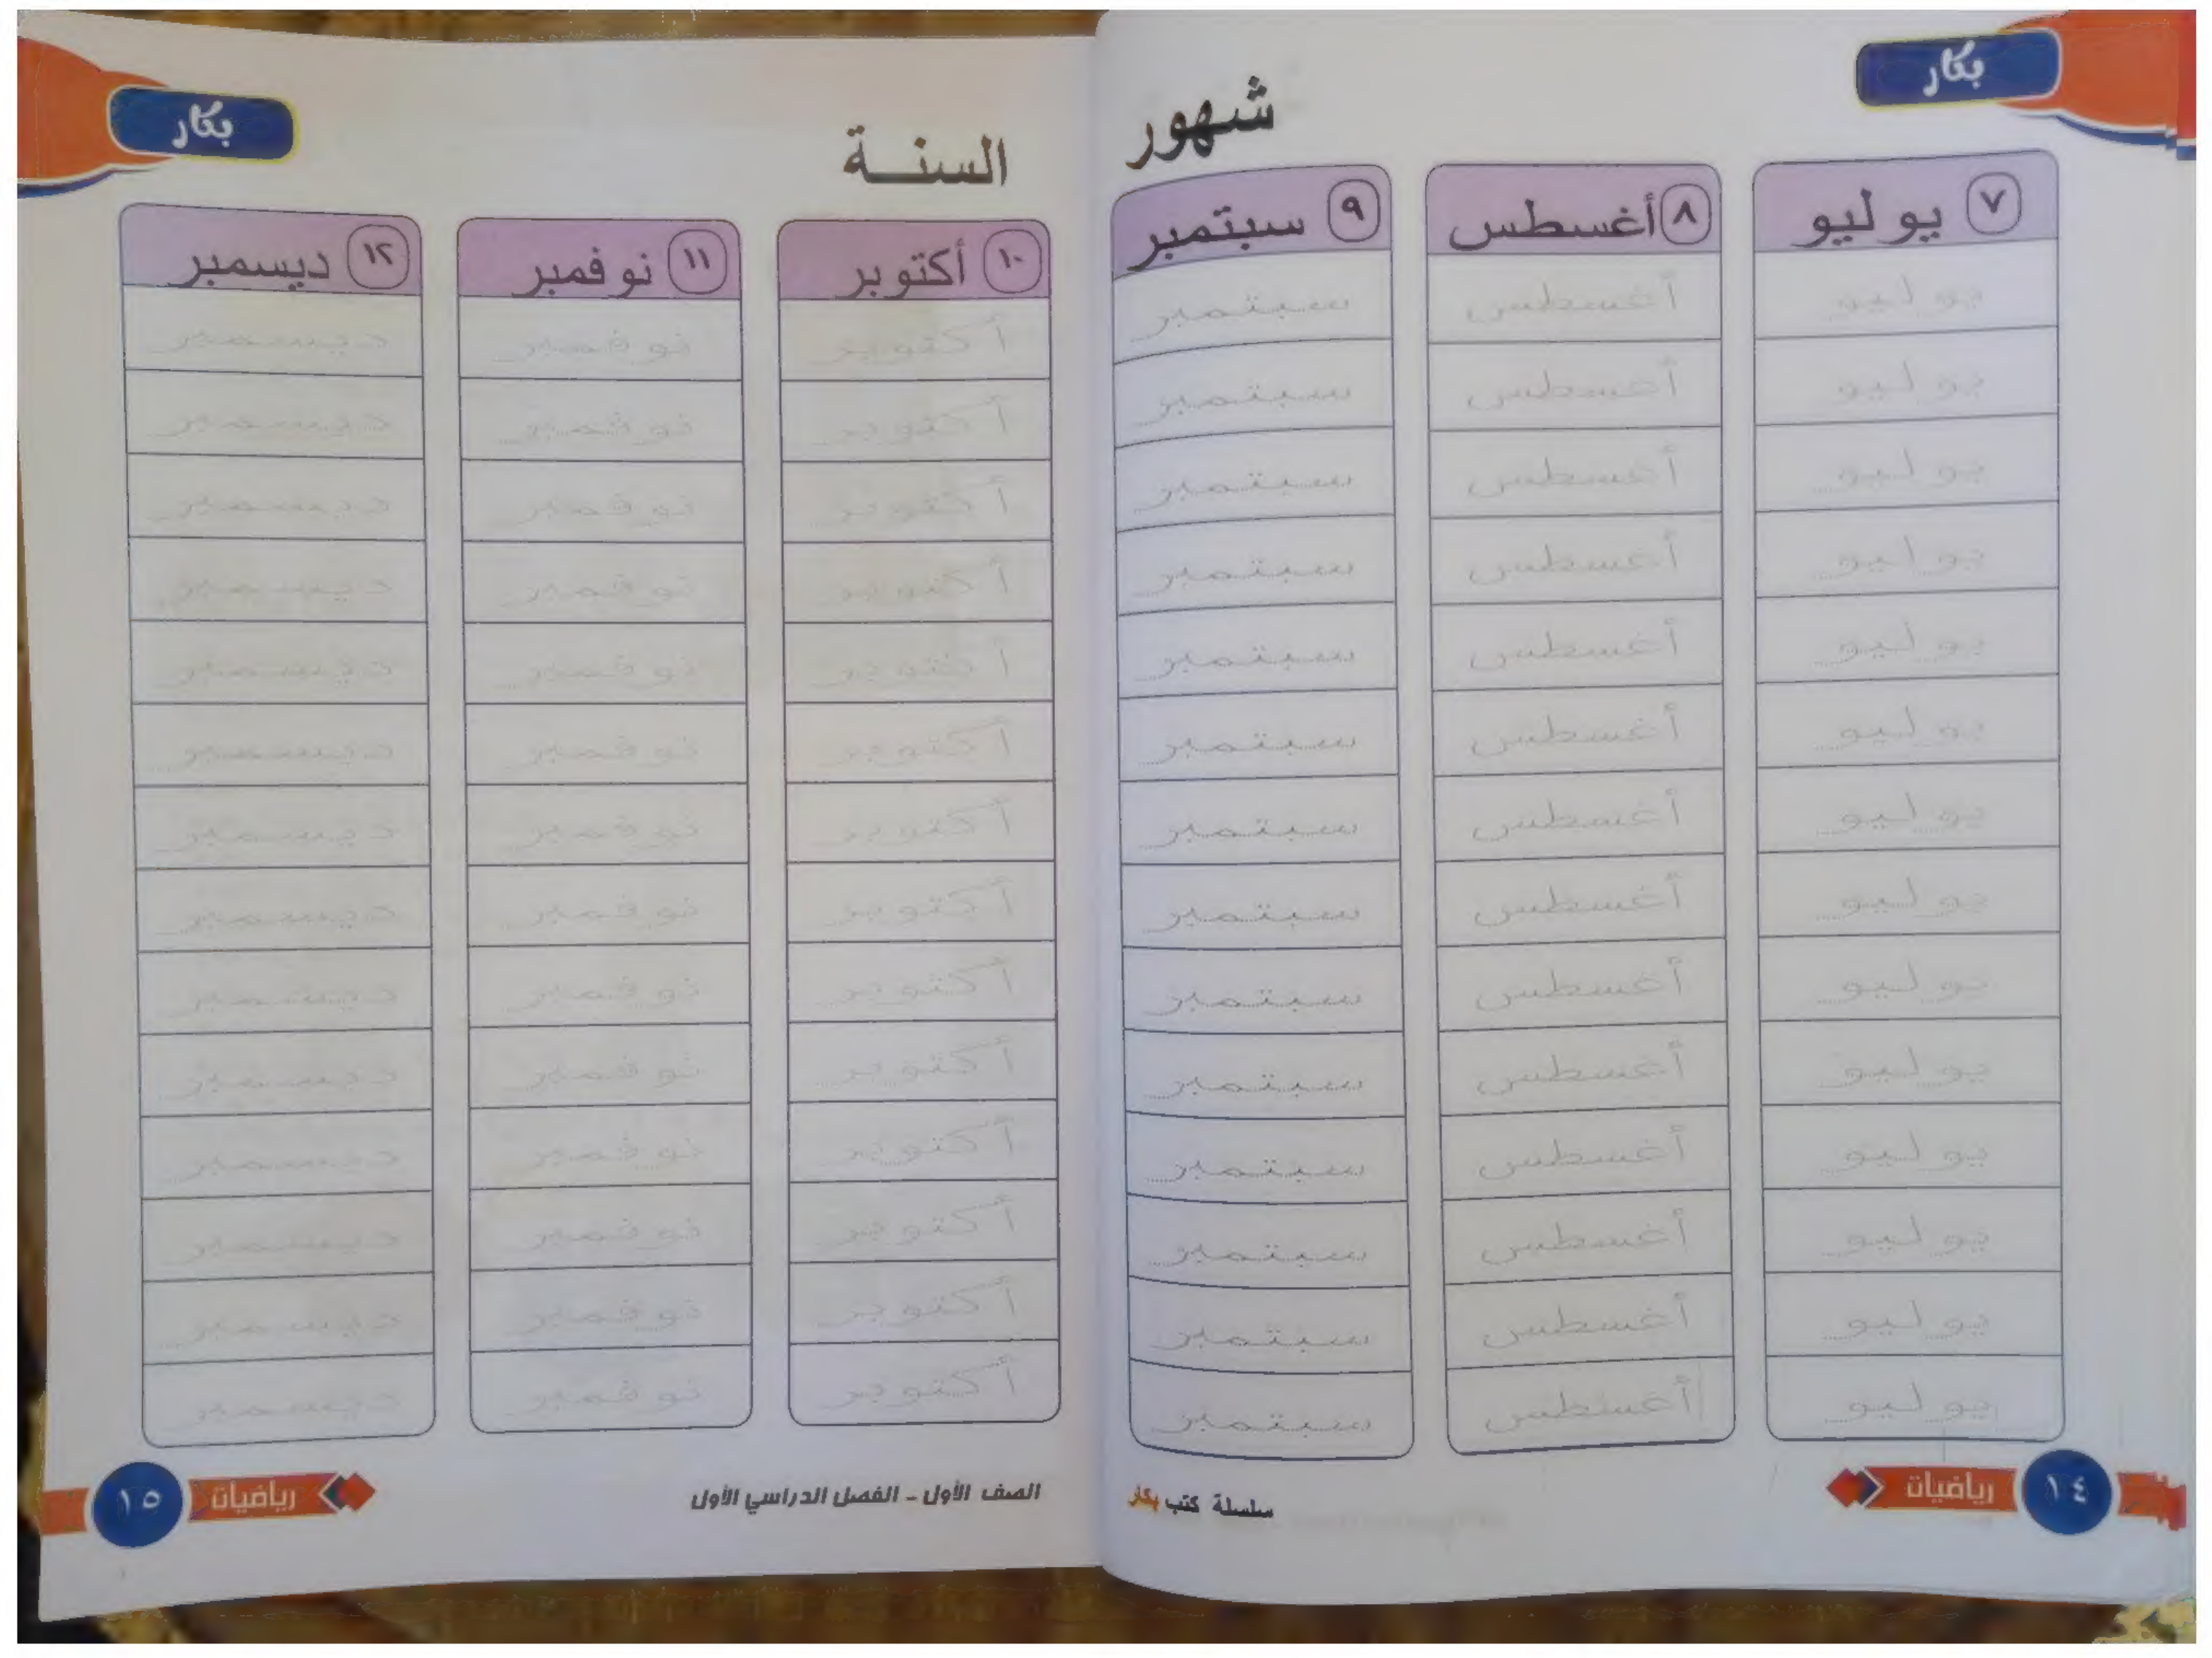 بكار
شهور
٧ يوليو
٨ أغسطس
٩ سبتمبر
يوليو أغسطس سبتمبر
يوليو أغسطس سبتمبر
يوليو أغسطس سبتمبر
يوليو أغسطس سبتمبر
يوليو أغسطس سبتمبر
يوليو أغسطس سبتمبر
يوليو أغسطس سبتمبر
يوليو أغسطس سبتمبر
يوليو أغسطس سبتمبر
يوليو أغسطس سبتمبر
يوليو أغسطس سبتمبر
يوليو أغسطس سبتمبر
يوليو أغسطس سبتمبر
يوليو أغسطس سبتمبر
١٤ رياضيات
سلسلة كتب بكار
بكار
السنة
١٠ أكتوبر
١١ نوفمبر
١٢ ديسمبر
أكتوبر نوفمبر ديسمبر
أكتوبر نوفمبر ديسمبر
أكتوبر نوفمبر ديسمبر
أكتوبر نوفمبر ديسمبر
أكتوبر نوفمبر ديسمبر
أكتوبر نوفمبر ديسمبر
أكتوبر نوفمبر ديسمبر
أكتوبر نوفمبر ديسمبر
أكتوبر نوفمبر ديسمبر
أكتوبر نوفمبر ديسمبر
أكتوبر نوفمبر ديسمبر
أكتوبر نوفمبر ديسمبر
أكتوبر نوفمبر ديسمبر
أكتوبر نوفمبر ديسمبر
الصف الأول - الفصل الدراسي الأول
رياضيات ١٥